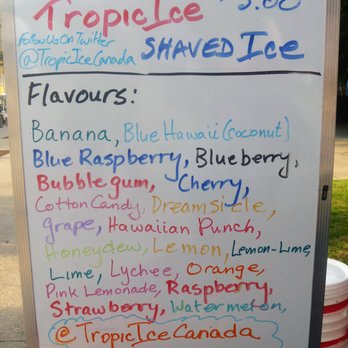 TropicIce
Follow Us On Twitter
@TropicIceCanada SHAVED Ice
Flavours:
Banana, Blue Hawaii (coconut)
Blue Raspberry, Blueberry,
Bubblegum, Cherry,
Cotton Candy, Dreamsicle,
grape, Hawaiian Punch,
Honeydew, Lemon, Lemon-Lime,
Lime, Lychee, Orange,
Pink Lemonade, Raspberry,
Strawberry, Watermelon,
@TropicIceCanada